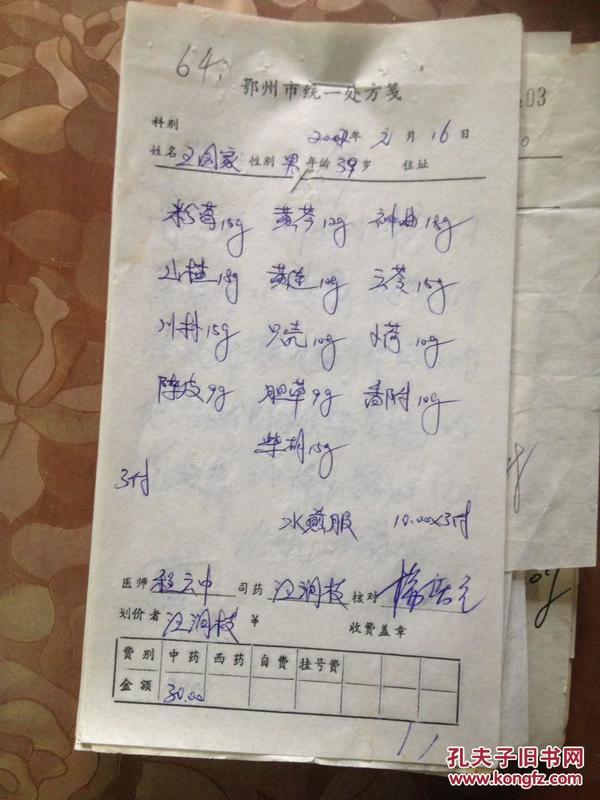 64.
鄂州市统一处方笺
科别
2007年 元月 16日
姓名 王国家 性别 男 年龄 39岁 住址
粉草15g 黄芩12g 神曲15g
山楂15g 黄连10g 云苓15g
川朴15g 只壳10g 卜荷10g
陈皮9g 胆草9g 香附10g
柴胡15g
3付
水煎服 10.00×3付
医师 程云中 司药 汪润枝 核对
划价者 汪润枝 ¥ 收费盖章
费别 中药 西药 自费 挂号费
金额 30.00
孔夫子旧书网
www.kongfz.com